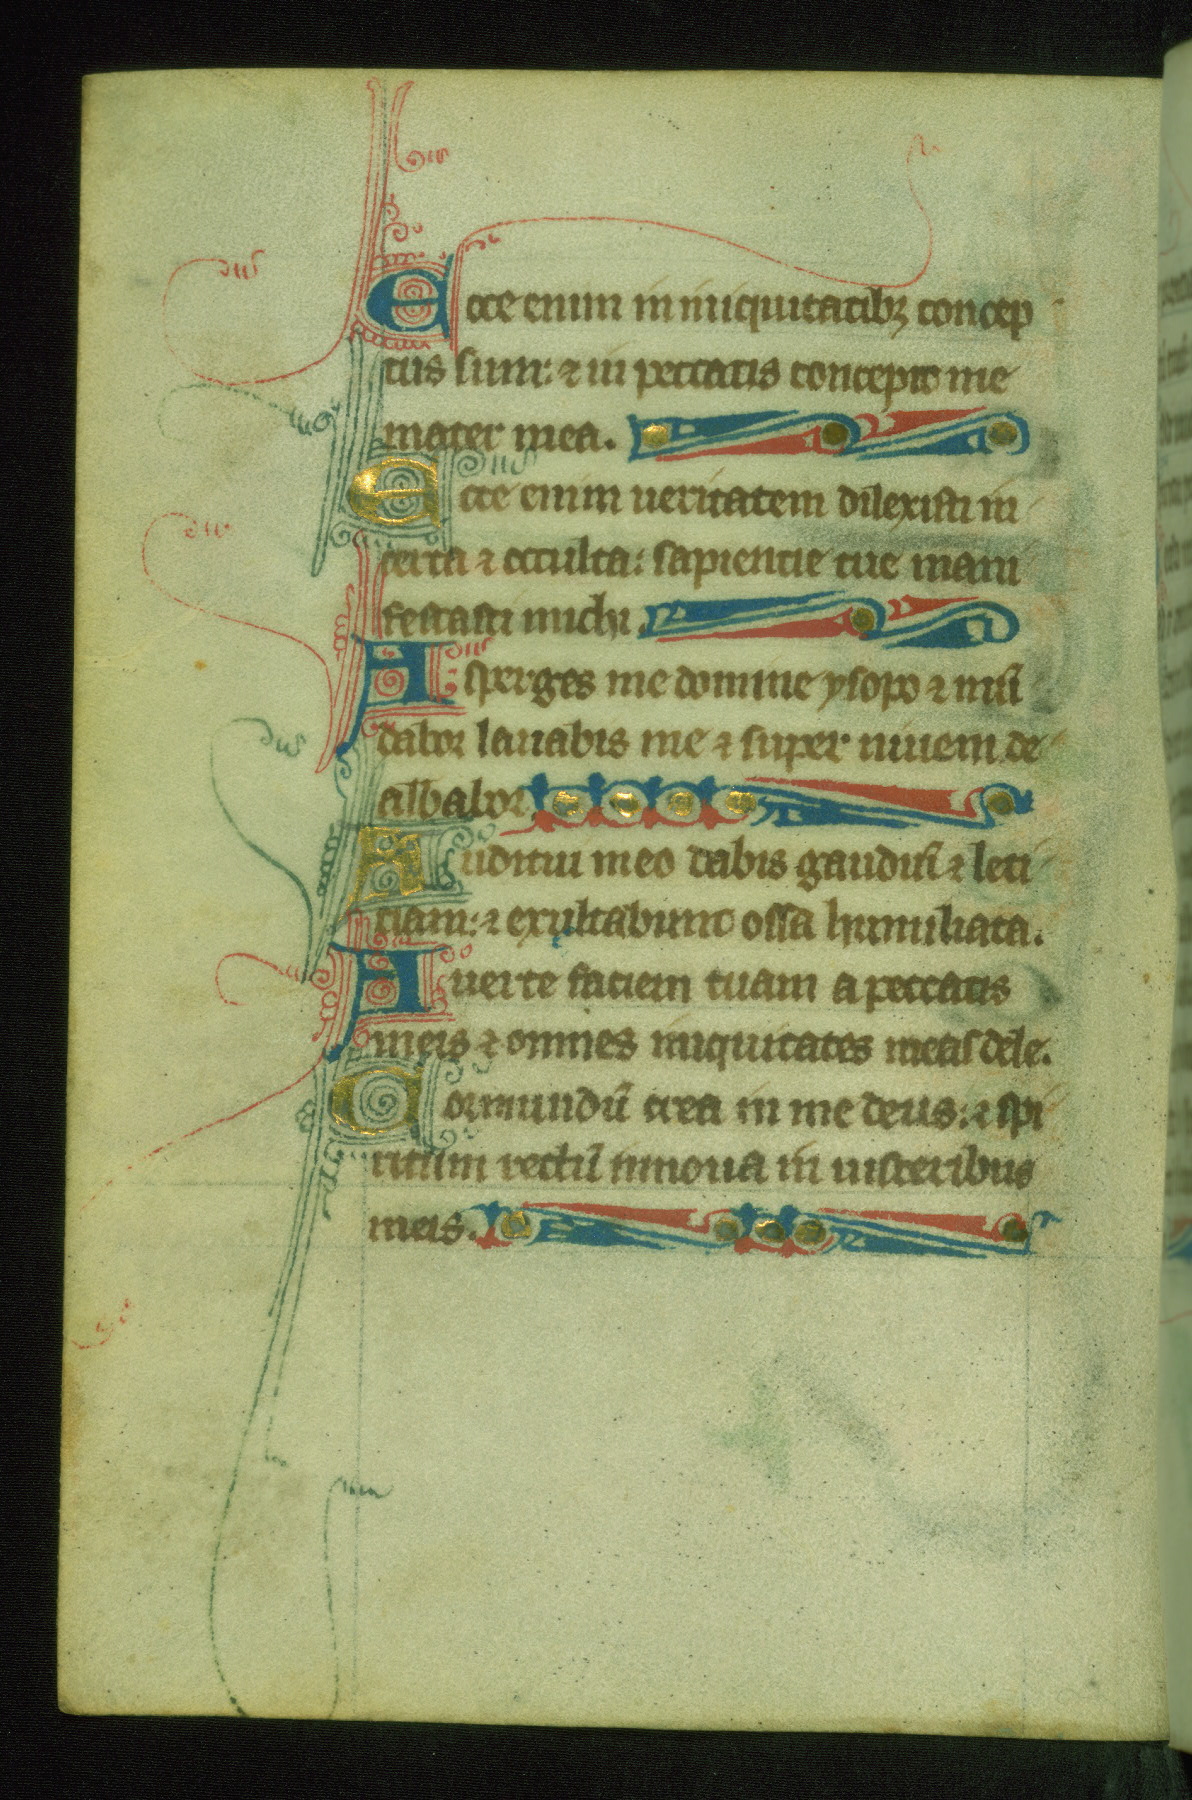 Ecce enim in iniquitatibꝫ concep
tus sum: ⁊ in peccatis concepit me
mater mea.
Ecce enim ueritatem dilexisti in
certa ⁊ occulta: sapientie tue mani
festasti michi.
Asperges me domine ysopo ⁊ mũ
dabor lauabis me ⁊ super niuem de
albabor.
Auditui meo dabis gaudiũ ⁊ leti
tiam: ⁊ exultabunt ossa humiliata.
Auerte faciem tuam a peccatis
meis ⁊ omnes iniquitates meas dele.
Cor mundũ crea in me deus: ⁊ spi
ritum rectũ innoua in uisceribus
meis.